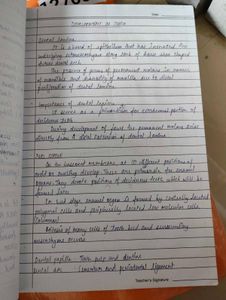 Date
Development of Teeth
Dental lamina
It is a band of epithelium that has invaded the
underlying ectomesenchyme along each of the horse shoe shaped
future dental arch.
The presence of primary of permanent molars in ramus
of mandible and tuberosity of maxilla due to distal
proliferation of dental lamina
Importance of dental lamina
It serves as a primordium for ectodermal portion of
deciduous teeth
During development of jaws the permanent molars arise
directly from a distal extension of dental lamina
Tooth
On the basement membrane at 10 different positions of
oral swelling develop. These are primordia for enamel
organs. They denote positions of deciduous teeth which will be
formed later
On bud stage enamel organ is formed by centrally located
polygonal cells and peripherally located low columnar cells.
of many cells of tooth bud and surrounding
mesenchyme occurs
Dental papilla Tooth pulp and dentine
Dental sac Cementum and periodontal ligament
Teacher's Signature